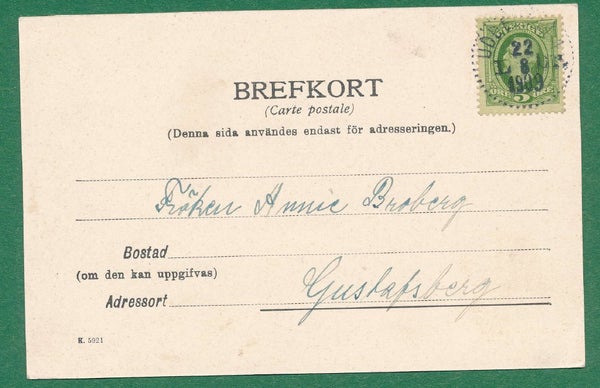 UDD
22
8
1903
5
BREFKORT
(Carte postale)
(Denna sida användes endast för adresseringen.)
Fröken Annie Broberg
Bostad
(om den kan uppgifvas)
Gustafsberg
Adressort
K. 5021